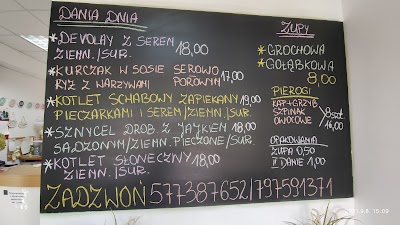 DANIA DNIA
* DEVOLAY Z SEREM 18,00
ZIEMN./SUR.
* KURCZAK W SOSIE SEROWO
RYŻ Z WARZYWAMI POROWYM 17,00
* KOTLET SCHABOWY ZAPIEKANY 19,00
PIECZARKAMI I SEREM/ZIEMN/SUR.
* SZNYCEL DROB. Z JAJKIEM 18,00
SADZONYM/ZIEMN./PIECZONE/SUR.
* KOTLET SŁONECZNY 18,00
ZIEMN/SUR.
ZUPY
* GROCHOWA
* GOŁĄBKOWA
8,00
PIEROGI
KAP+GRZYB
SZPINAK 8szt
OWOCOWE 16,00
OPAKOWANIA
ZUPA 0,50
II DANIE 1,00
ZADZWOŃ 577387652/797591371